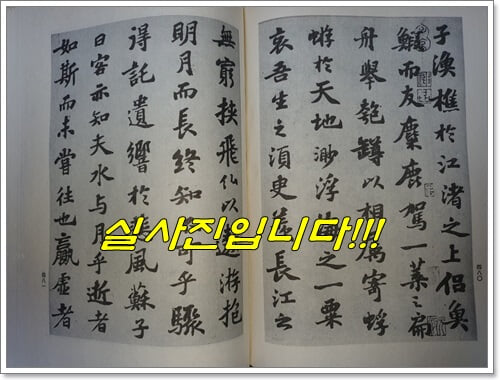 子漁樵於江渚之上侶魚
鰕而友麋鹿駕一葉之扁
舟舉匏罇以相屬寄蜉
蝣於天地渺浮海之一粟
哀吾生之須臾羨長江之
四八〇
無窮挾飛仙以遨游抱
明月而長終知不可乎驟
得託遺響於悲風蘇子
曰客亦知夫水與月乎逝者
如斯而未嘗往也贏虛者
四八一
실사진입니다!!!